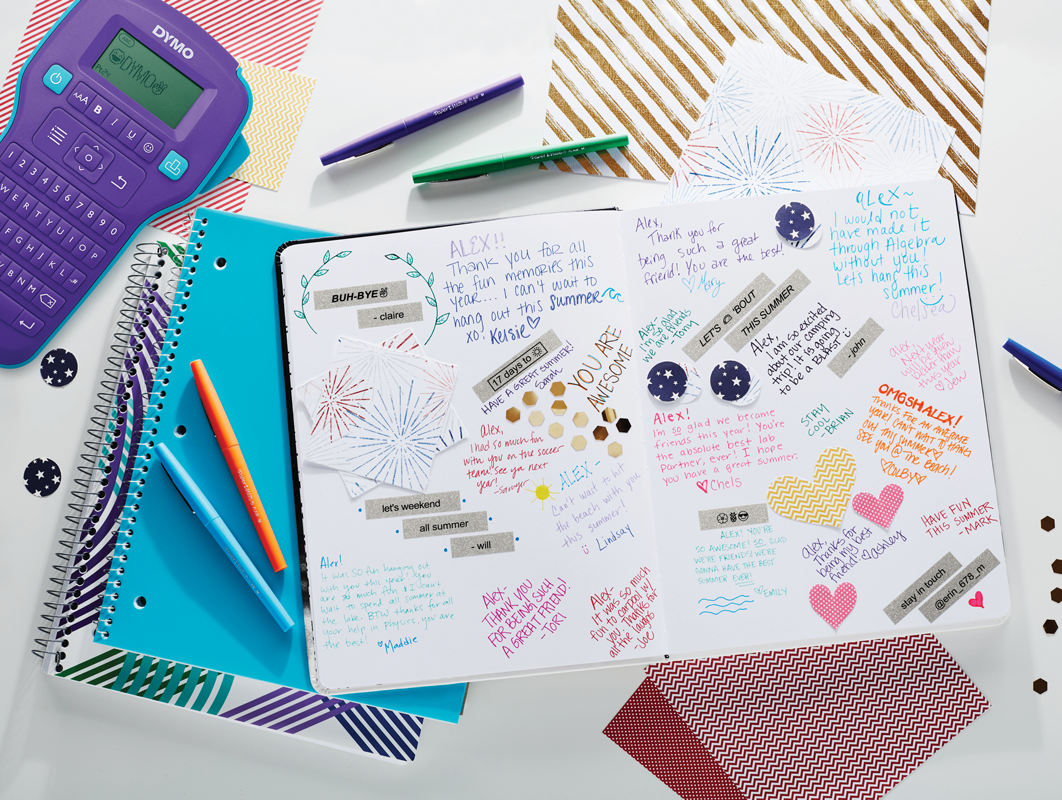 DYMO
ABC
DYMO
AAA B I U
1 2 3 4 5 6 7 8 9 0
QWERTYUIOP
ASDFGHJKL
ZXCVBNM
PaperMate FLAIR
BUH-BYE
- claire
ALEX!!
Thank you for all
the fun memories this
year.... I can't wait to
hang out this summer
xo, Kelsie
17 days to
HAVE A GREAT SUMMER!
Sarah
YOU ARE
AWESOME
alex,
I had so much fun
with you on the soccer
team! See ya next
year!
- Sawyer
ALEX-
Can't wait to hit
the beach with you
this summer!
Lindsay
let's weekend
all summer
- will
Alex!
It was so fun hanging out
with you this year! you
are so much fun & I can't
wait to spend all summer at
the lake. BTW, thanks for all
your help in physics, you are
the best!
Maddie
ALEX
THANK YOU
FOR BEING SUCH
A GREAT FRIEND!
- TORI
Alex-
It was so much
fun to carpool w/
you. Thanks for
all the laughs
- Joe
Alex,
Thank you for
being such a great
friend! You are the best!
Mary
aLeX~
I would not
have made it
through Algebra
without you!
Lets hang this
summer!
Chelsea
Alex-
I'm so glad
we are friends
- Tony
LET'S BOUT
THIS SUMMER
Alex,
I am so excited
about our camping
trip! It is going
to be a BLAST
- john
Alex!
I'm so glad we became
friends this year! You're
the absolute best lab
partner, ever! I hope
you have a great summer.
Chels
STAY
COOL!
- BRIAN
alex
Next year
will be even
better than
this year
OMGSHALEX!
Thanks for an awesome
year! CAN'T WAIT TO HANG
OUT THIS SUMMER!
SEE you @ the Beach!
COLBY
ALEX! YOU'RE
SO AWESOME! SO GLAD
WE'RE FRIENDS! WE'RE
GONNA HAVE THE BEST
SUMMER EVER!
EMILY
alex,
Thanks for
being my best
friend!
ashley
HAVE FUN
THIS SUMMER
- MARK
stay in touch
@erin_678_m